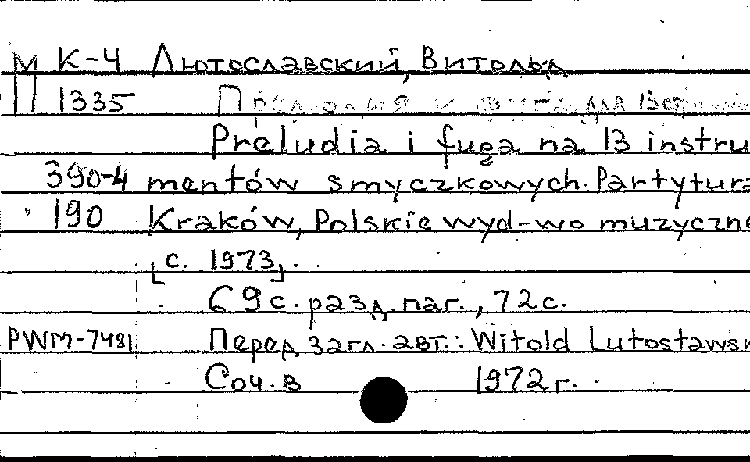 М К-4 Лютославский, Витольд
П 1335 Прелюдия и фуга для 13
Preludia i fuga na 13 instru
390-4 mentów smyczkowych. Partytura
190 Kraków, Polskie wyd-wo muzyczne
[с. 1973].
69 с. разд. паг., 72 с.
PWM-7481 Перед загл. авт.: Witold Lutosławsk
Соч. в 1972 г.